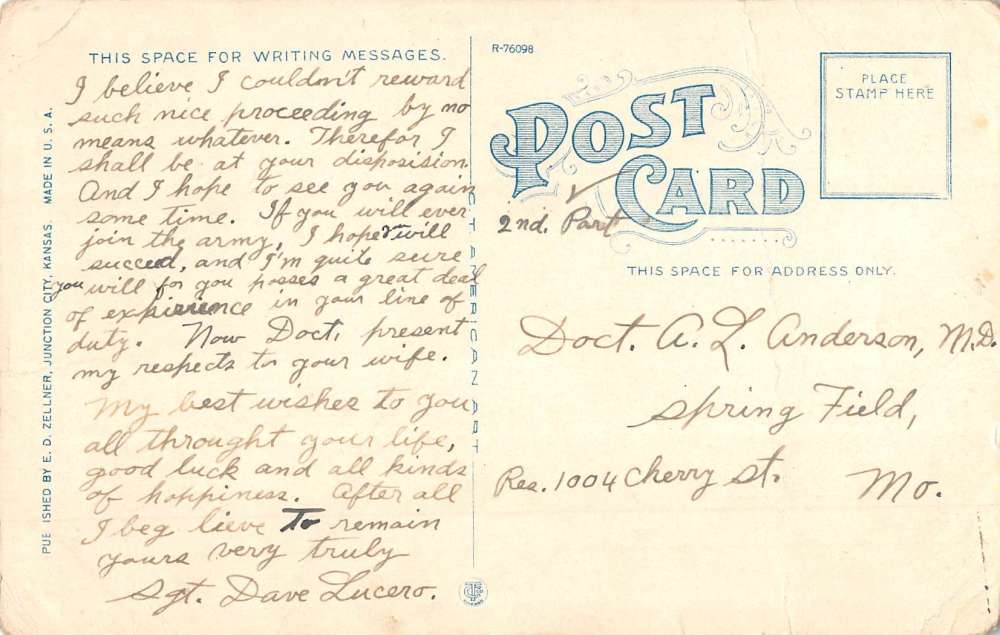 THIS SPACE FOR WRITING MESSAGES.
I believe I couldn't reward
such nice proceeding by no
means whatever. Therefor I
shall be at your disposision
And I hope to see you again
some time. If you will ever
join the army, I hope will
succeed, and I'm quite sure
you will for you posses a great deal
of expierience in your line of
duty. Now Doct, present
my respects to your wife.
My best wishes to you
all throught your life,
good luck and all kinds
of happiness. After all
I beg lieve To remain
yours very truly
Sgt. Dave Lucero.
PUB ISHED BY E. D. ZELLNER, JUNCTION CITY, KANSAS. MADE IN U. S. A.
CT AMERICAN ART
R-76098
POST
CARD
2nd. Part
PLACE
STAMP HERE
THIS SPACE FOR ADDRESS ONLY.
Doct. A. L. Anderson, M.D.
Spring Field,
Res. 1004 Cherry St.
Mo.